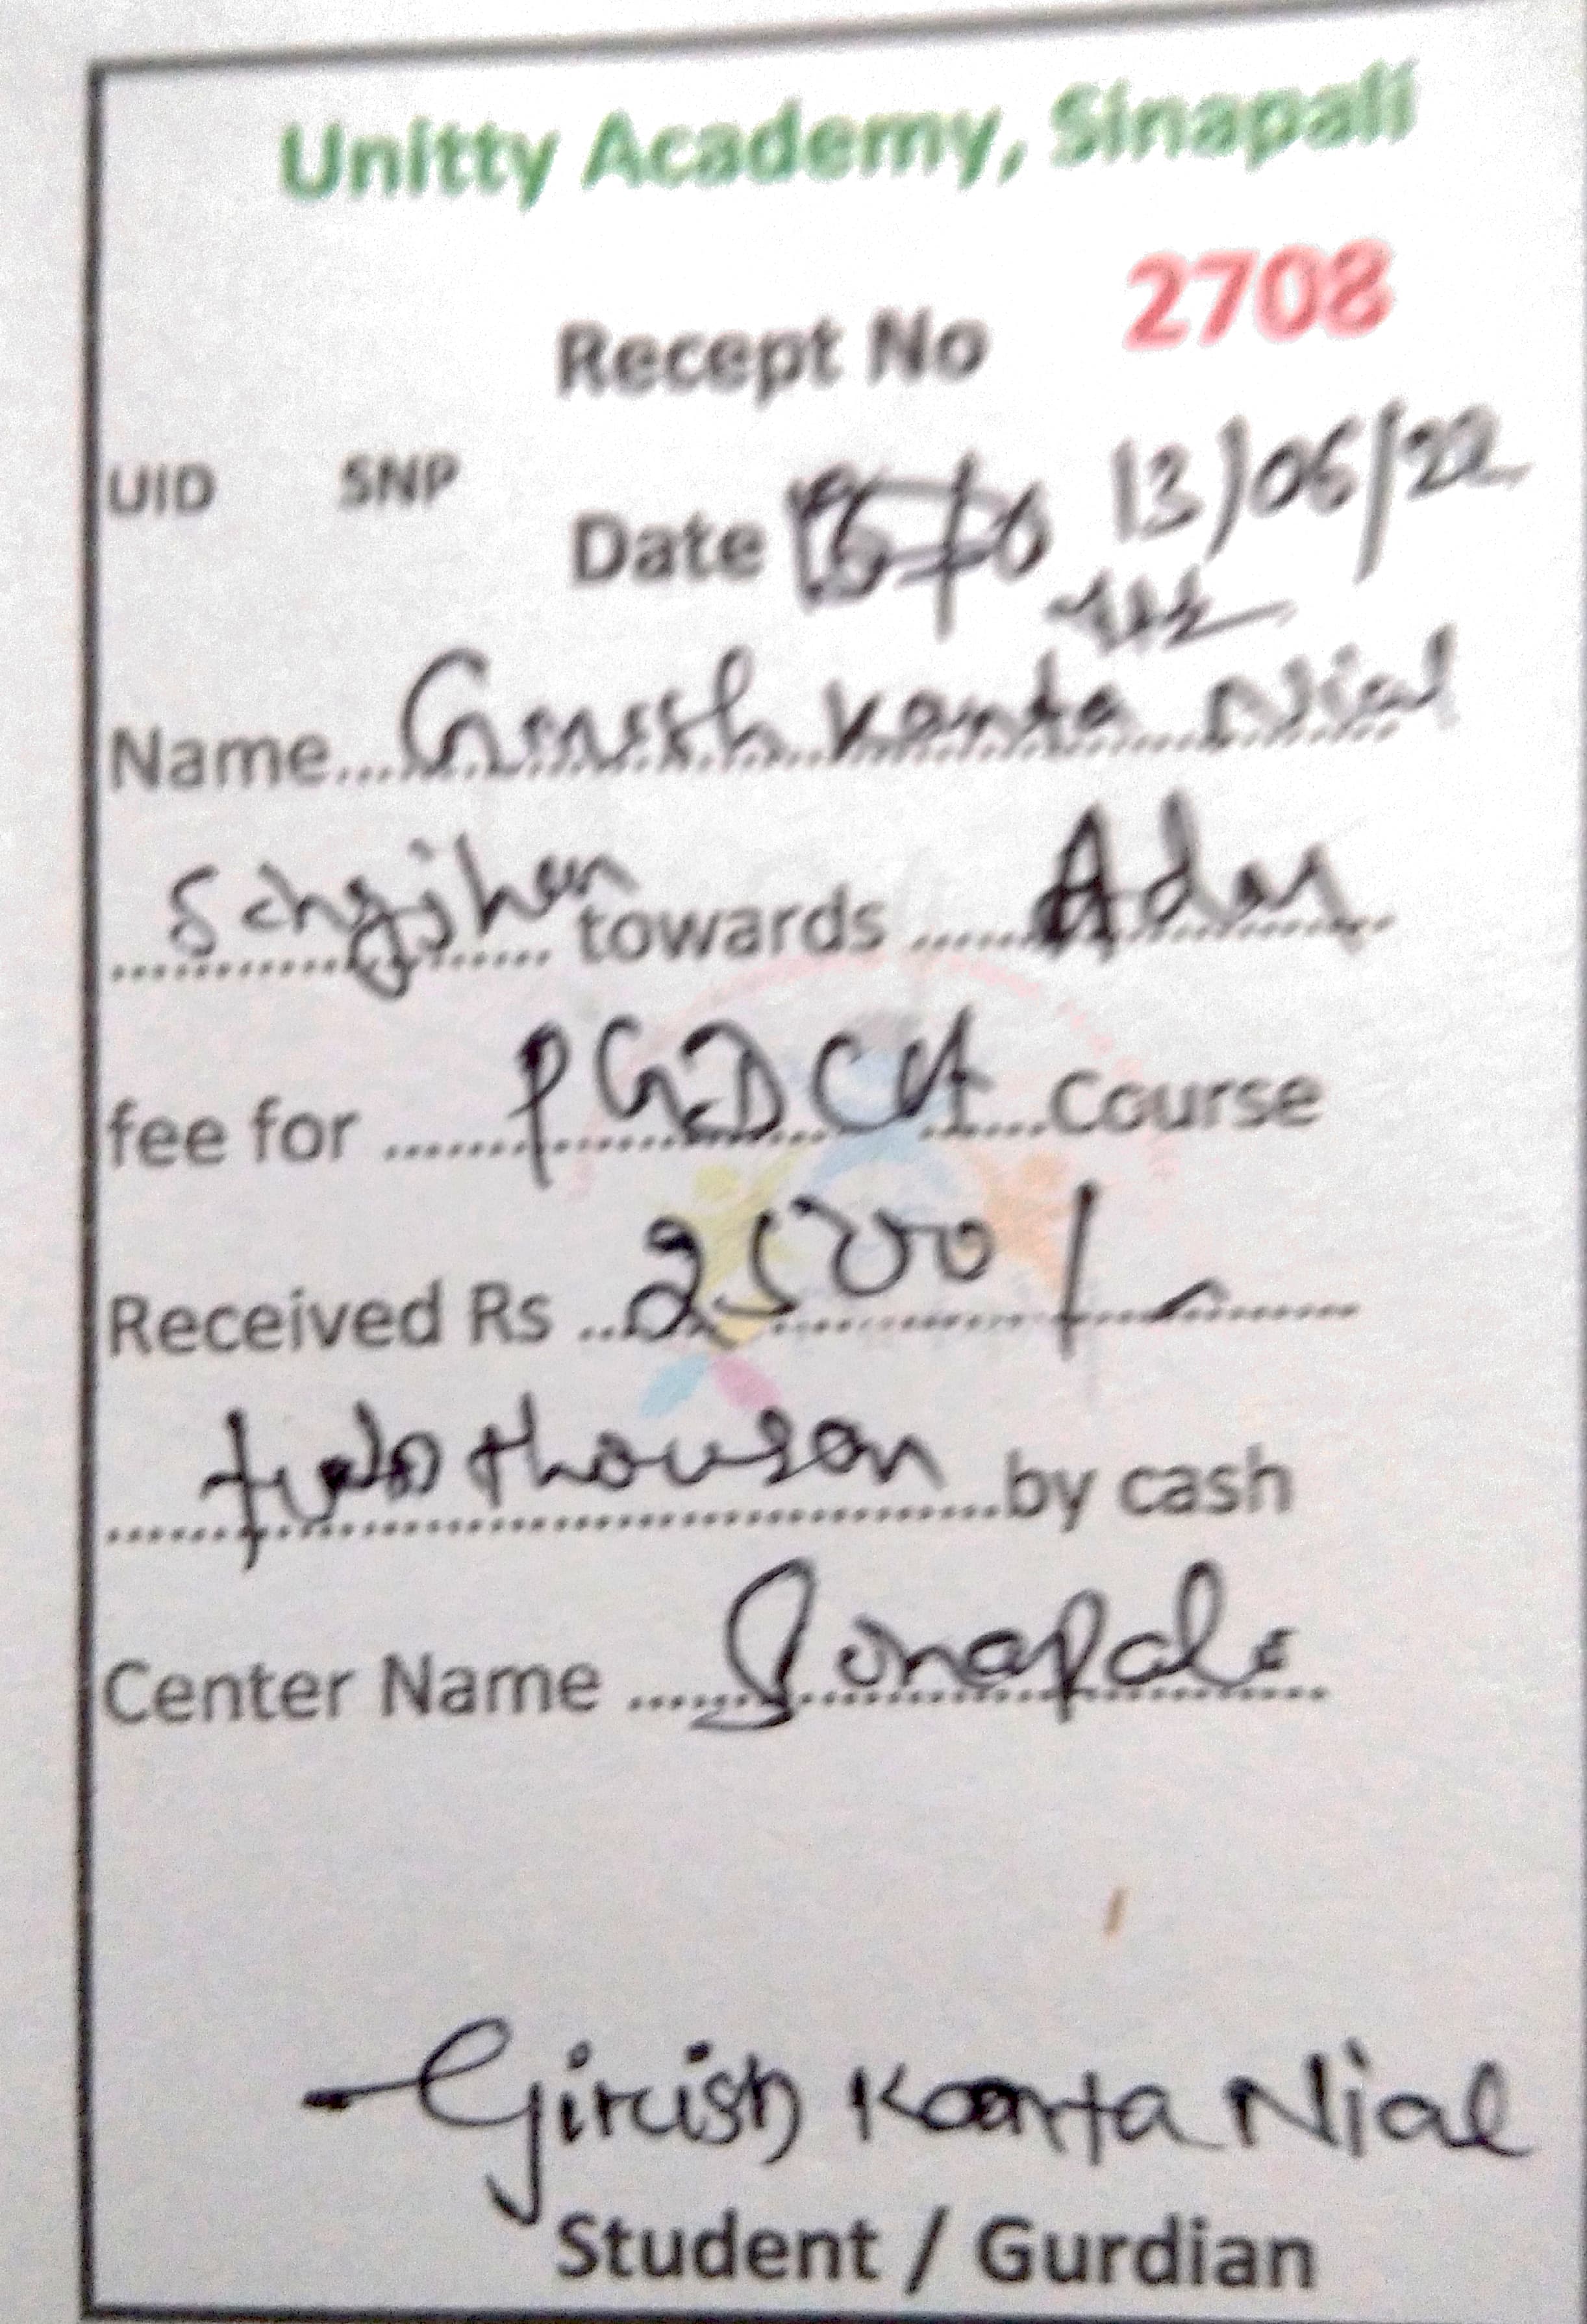 Unitty Academy, Sinapali
Recept No 2708
UID SNP
Date 13/06/22
Name Girish Kanta Nial
towards Adm
fee for PGDCA Course
Received Rs 2500/-
thouson by cash
Center Name Sinapali
Girish Kanta Nial
Student / Gurdian